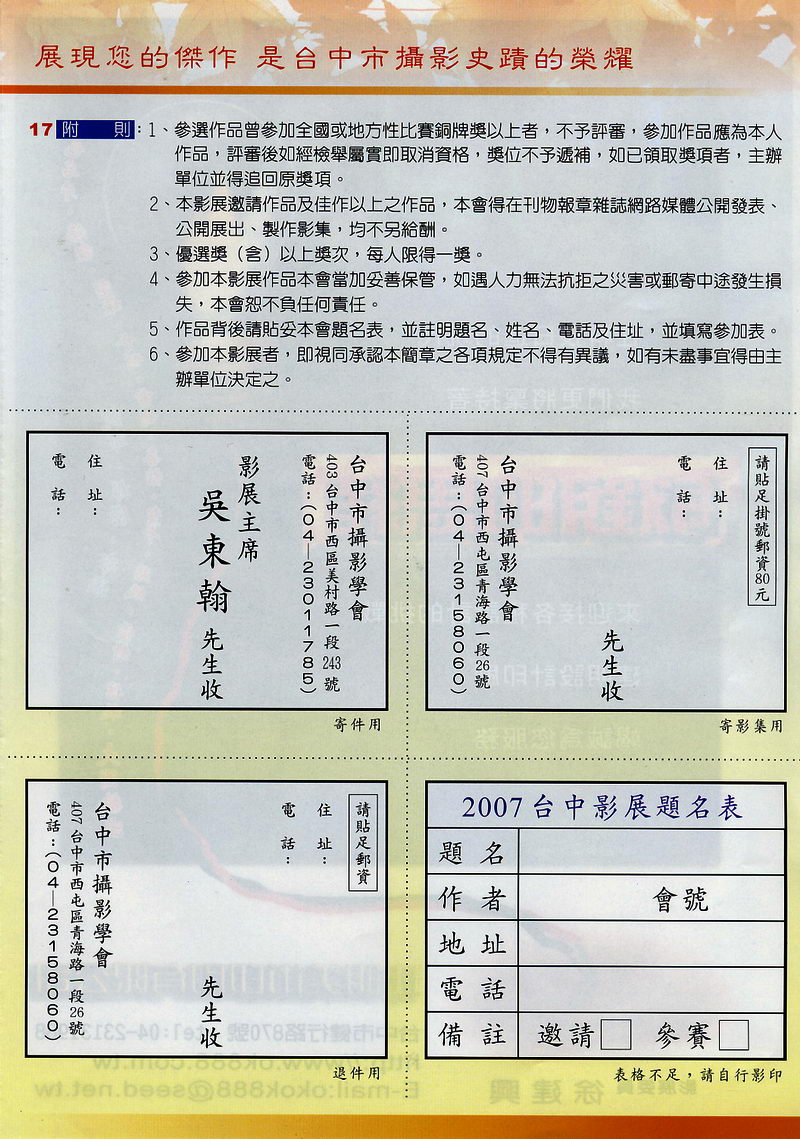 展現您的傑作 是台中市攝影史蹟的榮耀
17 附 則：1、參選作品曾參加全國或地方性比賽銅牌獎以上者，不予評審，參加作品應為本人
作品，評審後如經檢舉屬實即取消資格，獎位不予遞補，如已領取獎項者，主辦
單位並得追回原獎項。
2、本影展邀請作品及佳作以上之作品，本會得在刊物報章雜誌網路媒體公開發表、
公開展出、製作影集，均不另給酬。
3、優選獎（含）以上獎次，每人限得一獎。
4、參加本影展作品本會當加妥善保管，如遇人力無法抗拒之災害或郵寄中途發生損
失，本會恕不負任何責任。
5、作品背後請貼妥本會題名表，並註明題名、姓名、電話及住址，並填寫參加表。
6、參加本影展者，即視同承認本簡章之各項規定不得有異議，如有未盡事宜得由主
辦單位決定之。
台中市攝影學會
403台中市西區美村路一段243號
電話：(04—23011785)
影展主席
吳東翰 先生收
住 址：
電 話：
寄件用
請貼足掛號郵資80元
住 址：
電 話：
先生收
台中市攝影學會
407台中市西屯區青海路一段26號
電話：(04—23158060)
寄影集用
請貼足郵資
住 址：
電 話：
先生收
台中市攝影學會
407台中市西屯區青海路一段26號
電話：(04—23158060)
退件用
2007台中影展題名表
題 名
作 者 會號
地 址
電 話
備 註 邀請□ 參賽□
表格不足，請自行影印